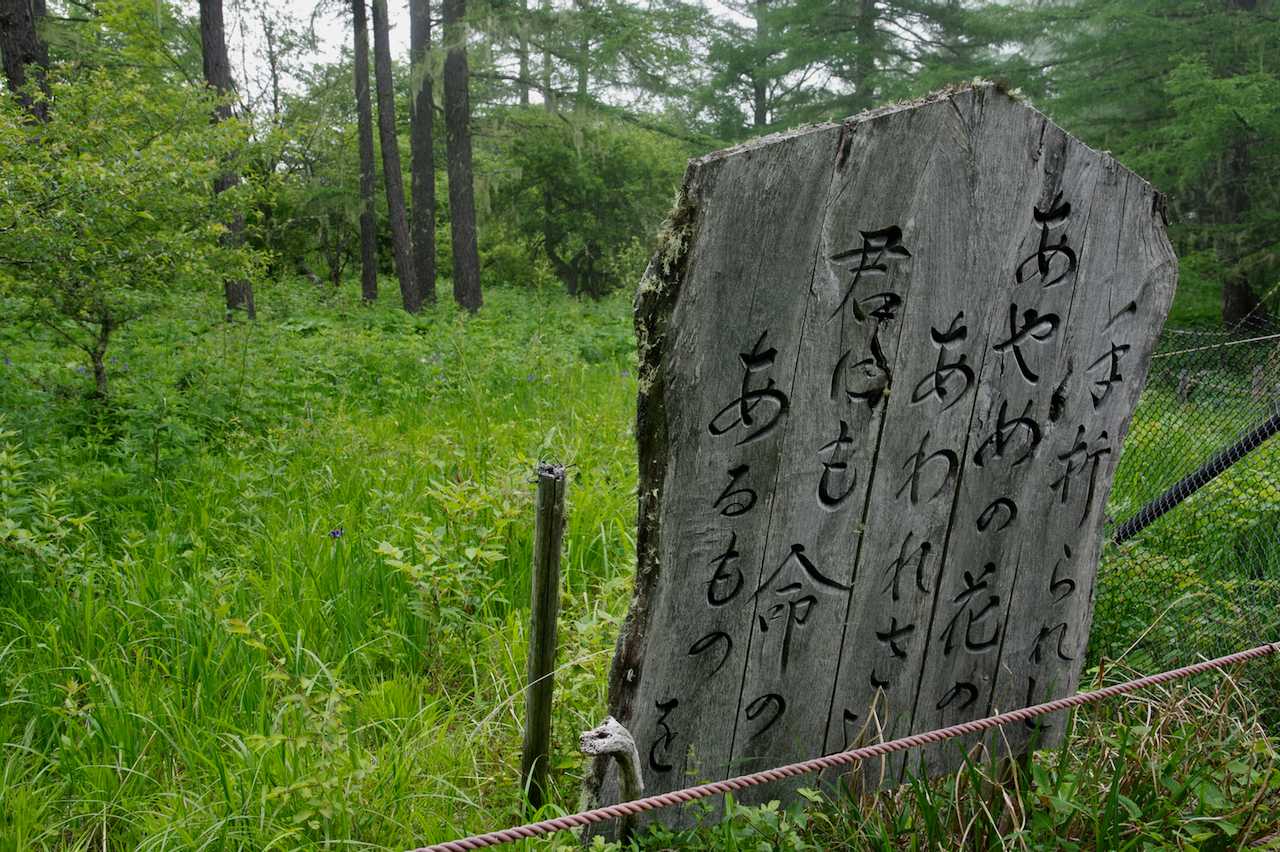 手折られし
あやめの花の
あわれさよ
君はも命の
あるものを